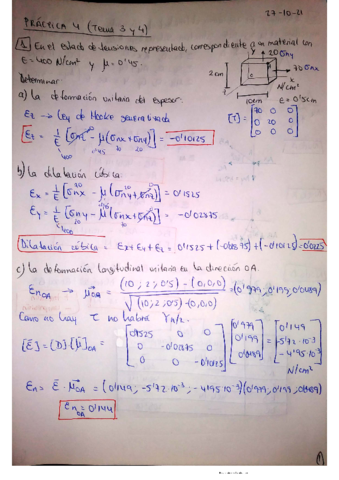 27-10-21
PRÁCTICA 4 (Tema 3 y 4)
1. En el estado de tensiones representado, correspondiente a un material con
E = 400 N/cm² y μ = 0'45.
Determinar
20 σny
70 σnx
2cm
10cm
E = 0'5cm
N/cm²
a) la deformación unitaria del espesor.
[T] = [70 0 0
0 20 0
0 0 0]
εz → Ley de Hooke generalizada
εz = 1/E [σnz - μ(σnx + σny)] = -0'10125
400 0'45 70 20
b) la dilatación cúbica.
εx = 1/E [σnx - μ(σny + σnz)] = 0'1525
εy = 1/E [σny - μ(σnx + σnz)] = -0'02875
Dilatación cúbica = εx + εy + εz = 0'1525 + (-0'02875) + (-0'10125) = 0'0225
c) la deformación longitudinal unitaria en la dirección OA.
εnOA → μOA = (10, 2, 0'5) - (0,0,0) / √(10, 2, 0'5) - (0,0,0) = (0'979, 0'195, 0'0489)
Como no hay τ no habrá γ/2.
[ε] = [D]·[μ]OA = [0'1525 0 0
0 -0'02875 0
0 0 -0'10125] [0'979
0'199
0'0489] = [0'149
-5'72·10⁻³
-4'95·10⁻³]
N/cm²
εn = ε · μOA = (0'149, -5'72·10⁻³, -4'95·10⁻³)(0'979, 0'199, 0'0489)
εnOA = 0'144
1